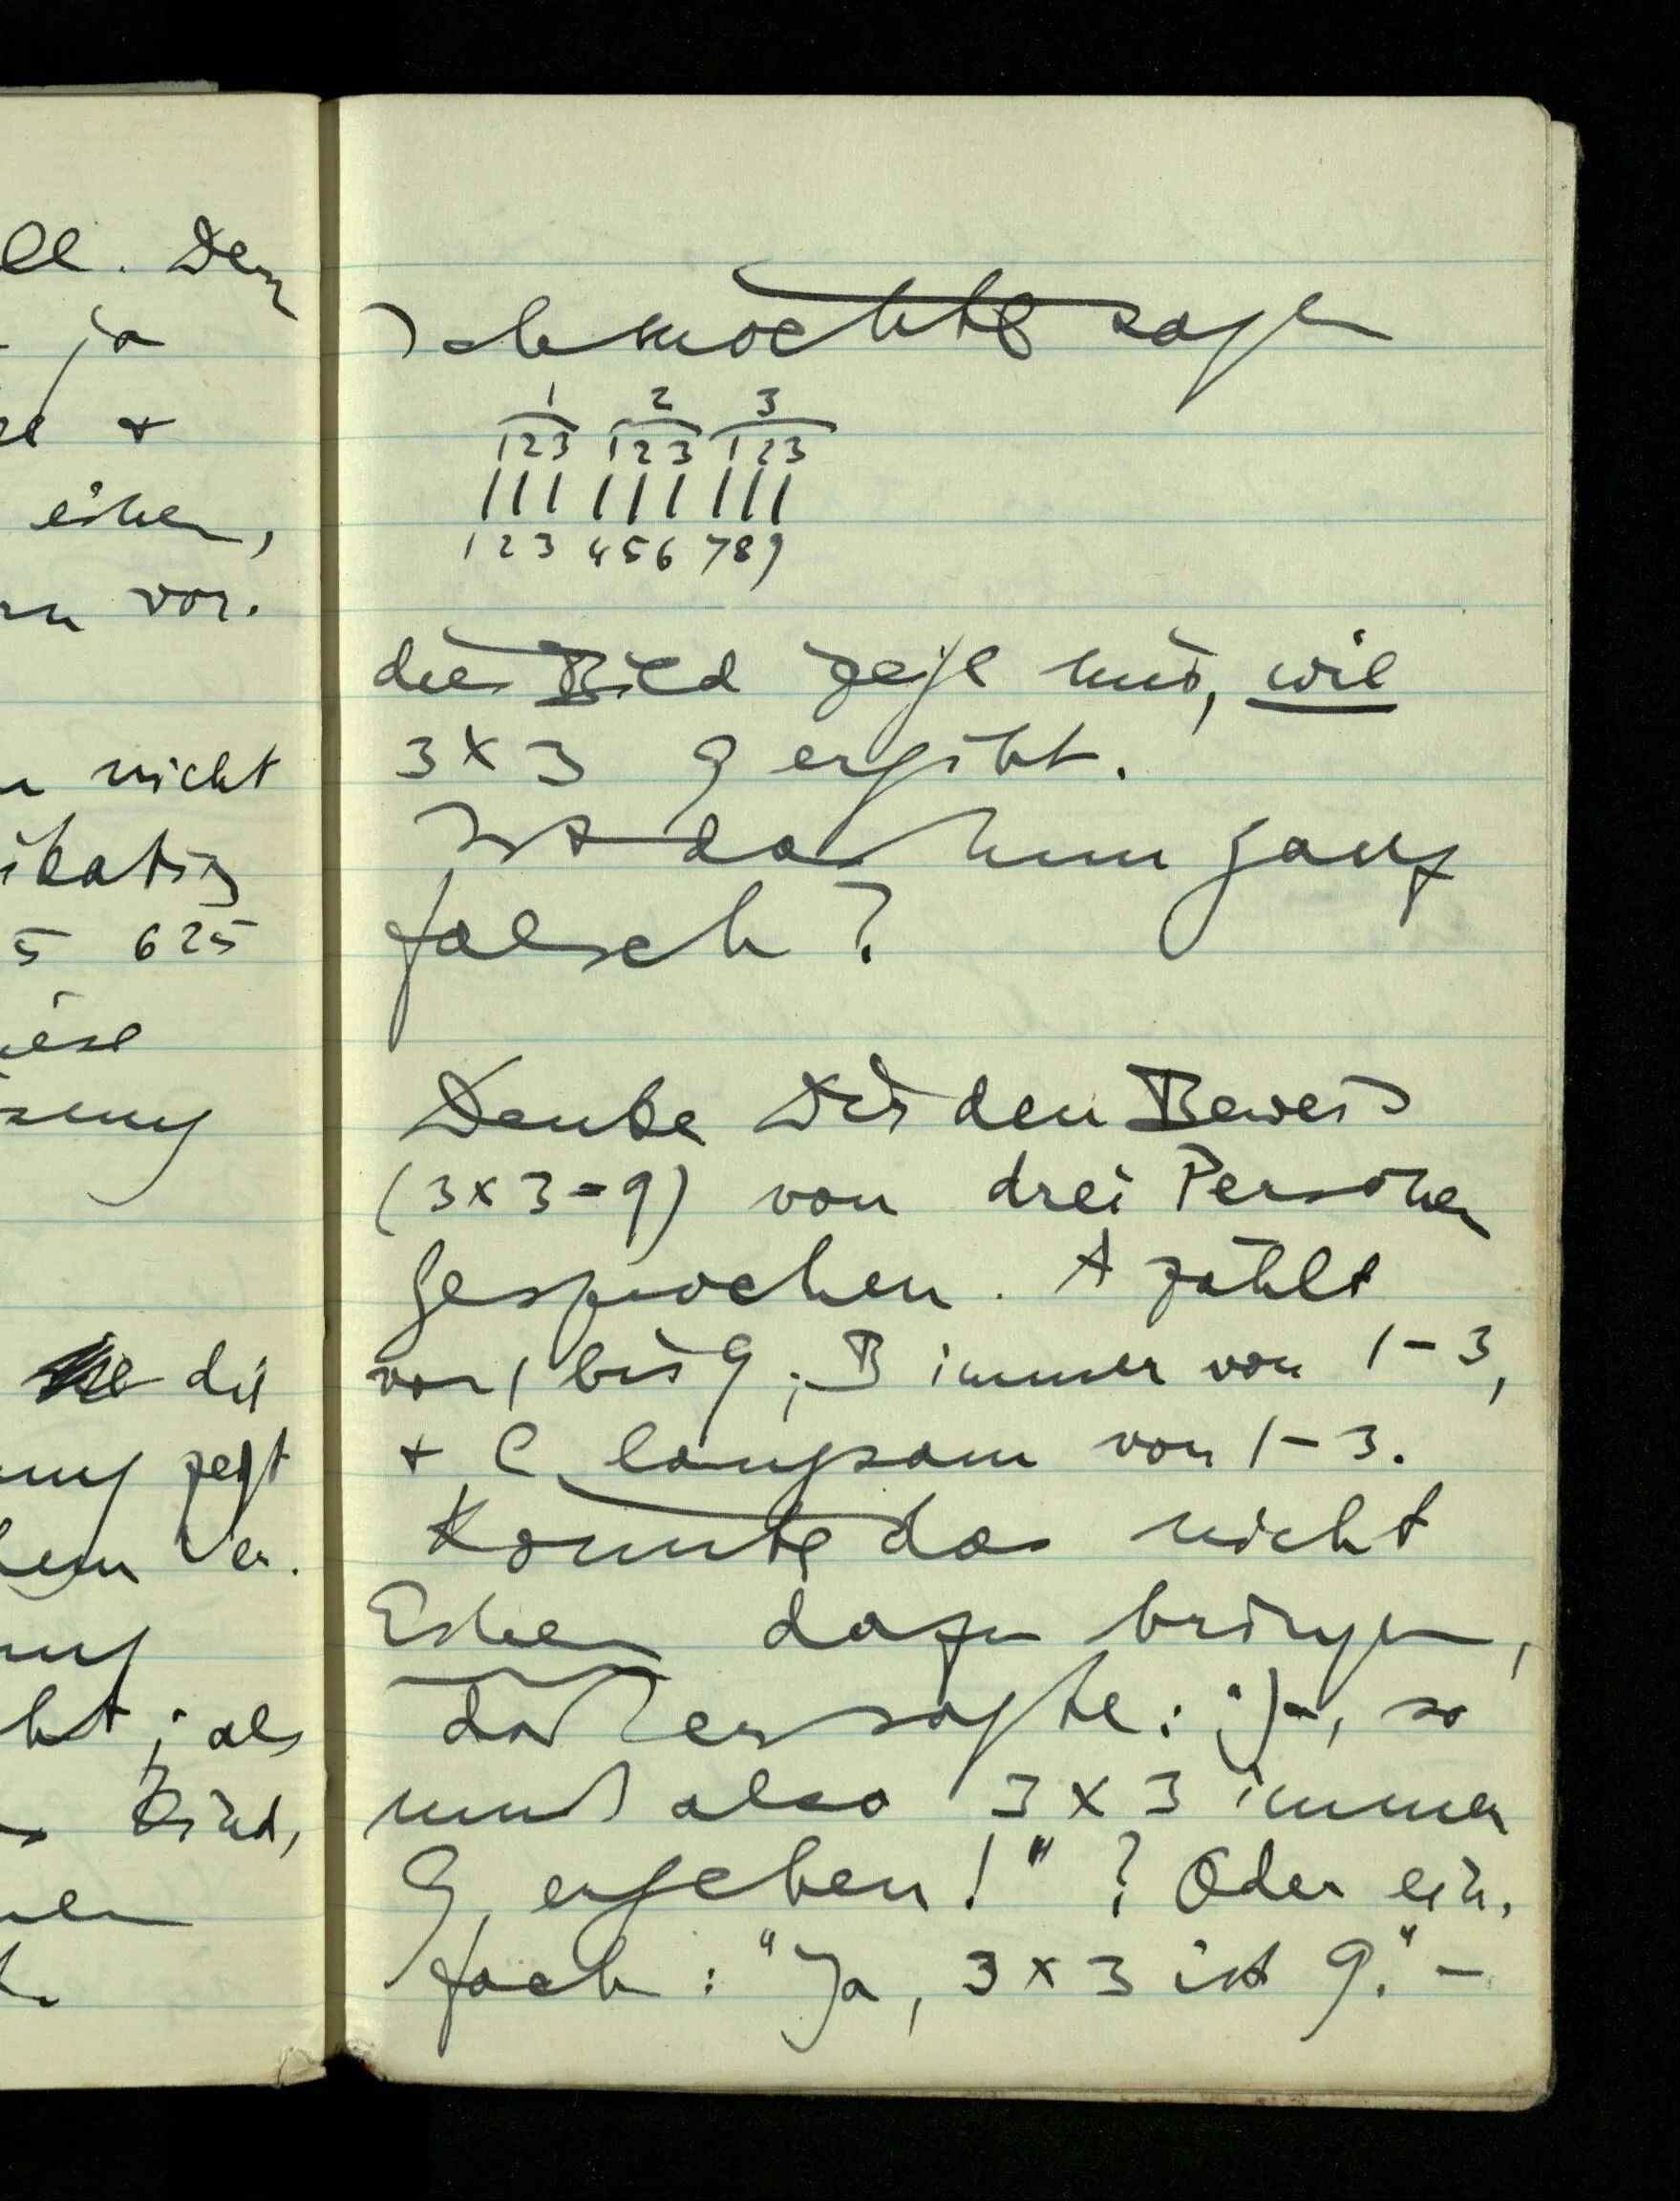 ll. Den
ja
&
einen,
vor.
nicht
ikation
5 625
iese
sung
die
ung zeigt
Ver.
ung
ht; als
Kind,
Ich möchte sagen
1 2 3
123 123 123
||| ||| |||
123 456 789
dies Bild zeigt uns, wie
3 x 3 9 ergibt.
Ist das nun ganz
falsch?
Denke Dir den Beweis
(3 x 3 = 9) von drei Personen
gesprochen. A zählt
von 1 bis 9; B immer von 1 – 3,
+ C langsam von 1 – 3.
Könnte das nicht
Einen dazu bringen,
daß er sagte: "Ja, so
muß also 3 x 3 immer
9 ergeben!" ? Oder ein-
fach: "Ja, 3 x 3 ist 9." –